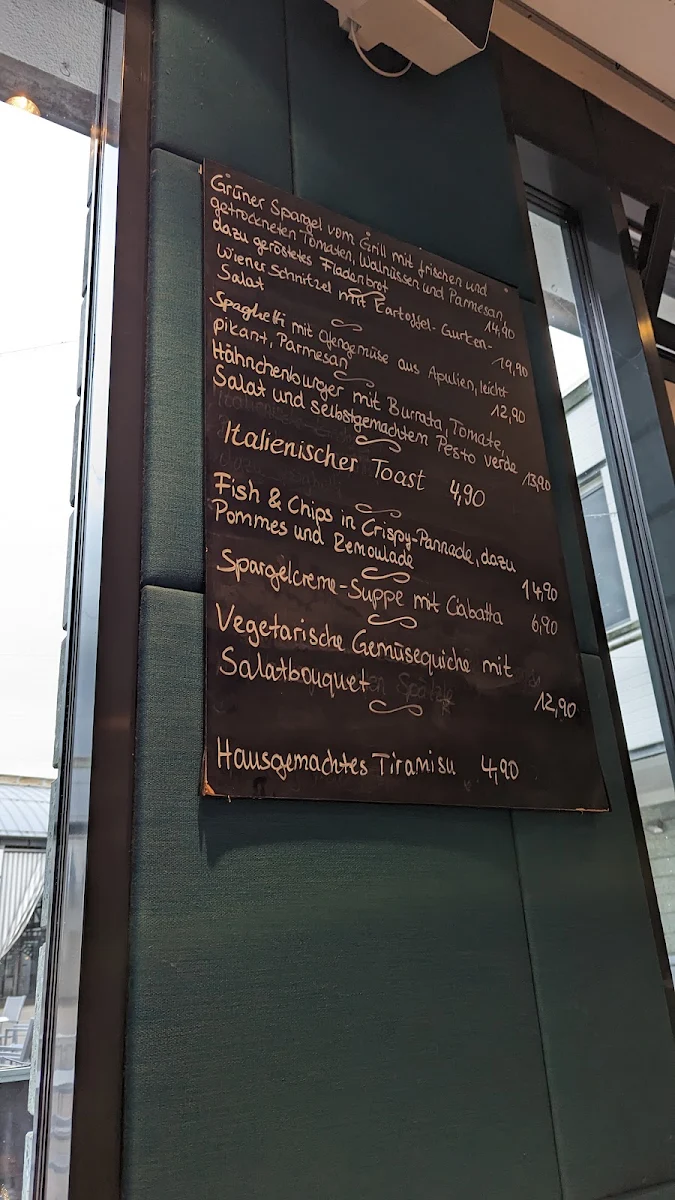 Grüner Spargel vom Grill mit frischen und
getrockneten Tomaten, Walnüssen und Parmesan,
dazu geröstetes Fladenbrot 14,90
Wiener Schnitzel mit Kartoffel-Gurken-
Salat 19,90
Spaghetti mit Ofengemüse aus Apulien, leicht
pikant, Parmesan 12,90
Hähnchenburger mit Burrata, Tomate,
Salat und selbstgemachtem Pesto verde 13,90
Italienischer Toast 4,90
Fish & Chips in Crispy-Pannade, dazu
Pommes und Remoulade 14,90
Spargelcreme-Suppe mit Ciabatta 6,90
Vegetarische Gemüsequiche mit
Salatbouquet 12,90
Hausgemachtes Tiramisu 4,90